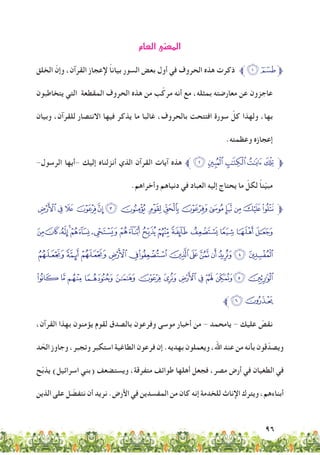 المعنى العام
﴿ طسٓمٓ ١ ﴾ ذكرت هذه الحروف في أول بعض السور بياناً لإعجاز القرآن، وإن الخلق
عاجزون عن معارضته بمثله، مع أنه مركّب من هذه الحروف المقطعة التي يتخاطبون
بها، ولهذا كلّ سورة افتتحت بالحروف، غالبا ما يذكر فيها الانتصار للقرآن، وبيان
إعجازه وعظمته.
﴿ تِلْكَ ءَايَٰتُ ٱلْكِتَٰبِ ٱلْمُبِينِ ٢ ﴾ هذه آيات القرآن الذي أنزلناه إليك -أيها الرسول-
مبيّناً لكلّ ما يحتاج إليه العباد في دنياهم وأخراهم.
﴿ نَتْلُوا۟ عَلَيْكَ مِن نَّبَإِ مُوسَىٰ وَفِرْعَوْنَ بِٱلْحَقِّ لِقَوْمٍ يُؤْمِنُونَ ٣ إِنَّ فِرْعَوْنَ عَلَا فِى ٱلْأَرْضِ
وَجَعَلَ أَهْلَهَا شِيَعًا يَسْتَضْعِفُ طَآئِفَةً مِّنْهُمْ يُذَبِّحُ أَبْنَآءَهُمْ وَيَسْتَحْىِۦ نِسَآءَهُمْ إِنَّهُۥ كَانَ مِنَ
ٱلْمُفْسِدِينَ ٤ وَنُرِيدُ أَن نَّمُنَّ عَلَى ٱلَّذِينَ ٱسْتُضْعِفُوا۟ فِى ٱلْأَرْضِ وَنَجْعَلَهُمْ أَئِمَّةً وَنَجْعَلَهُمُ
ٱلْوَٰرِثِينَ ٥ وَنُمَكِّنَ لَهُمْ فِى ٱلْأَرْضِ وَنُرِىَ فِرْعَوْنَ وَهَٰمَٰنَ وَجُنُودَهُمَا مِنْهُم مَّا كَانُوا۟
يَحْذَرُونَ ٦ ﴾
نقصّ عليك - يامحمد - من أخبار موسى وفرعون بالصدق لقوم يؤمنون بهذا القرآن،
ويصدّقون بأنه من عند الله، ويعملون بهديه. إن فرعون الطاغية استكبر وتجبر، وجاوز الحد
في الطغيان في أرض مصر، فجعل أهلها طوائف متفرقة، ويستضعف (بني اسرائيل) يذبّح
أبناءهم، ويترك الإناث للخدمة إنه كان من المفسدين في الأرض. نريد أن نتفضّل على الذين
٩٦